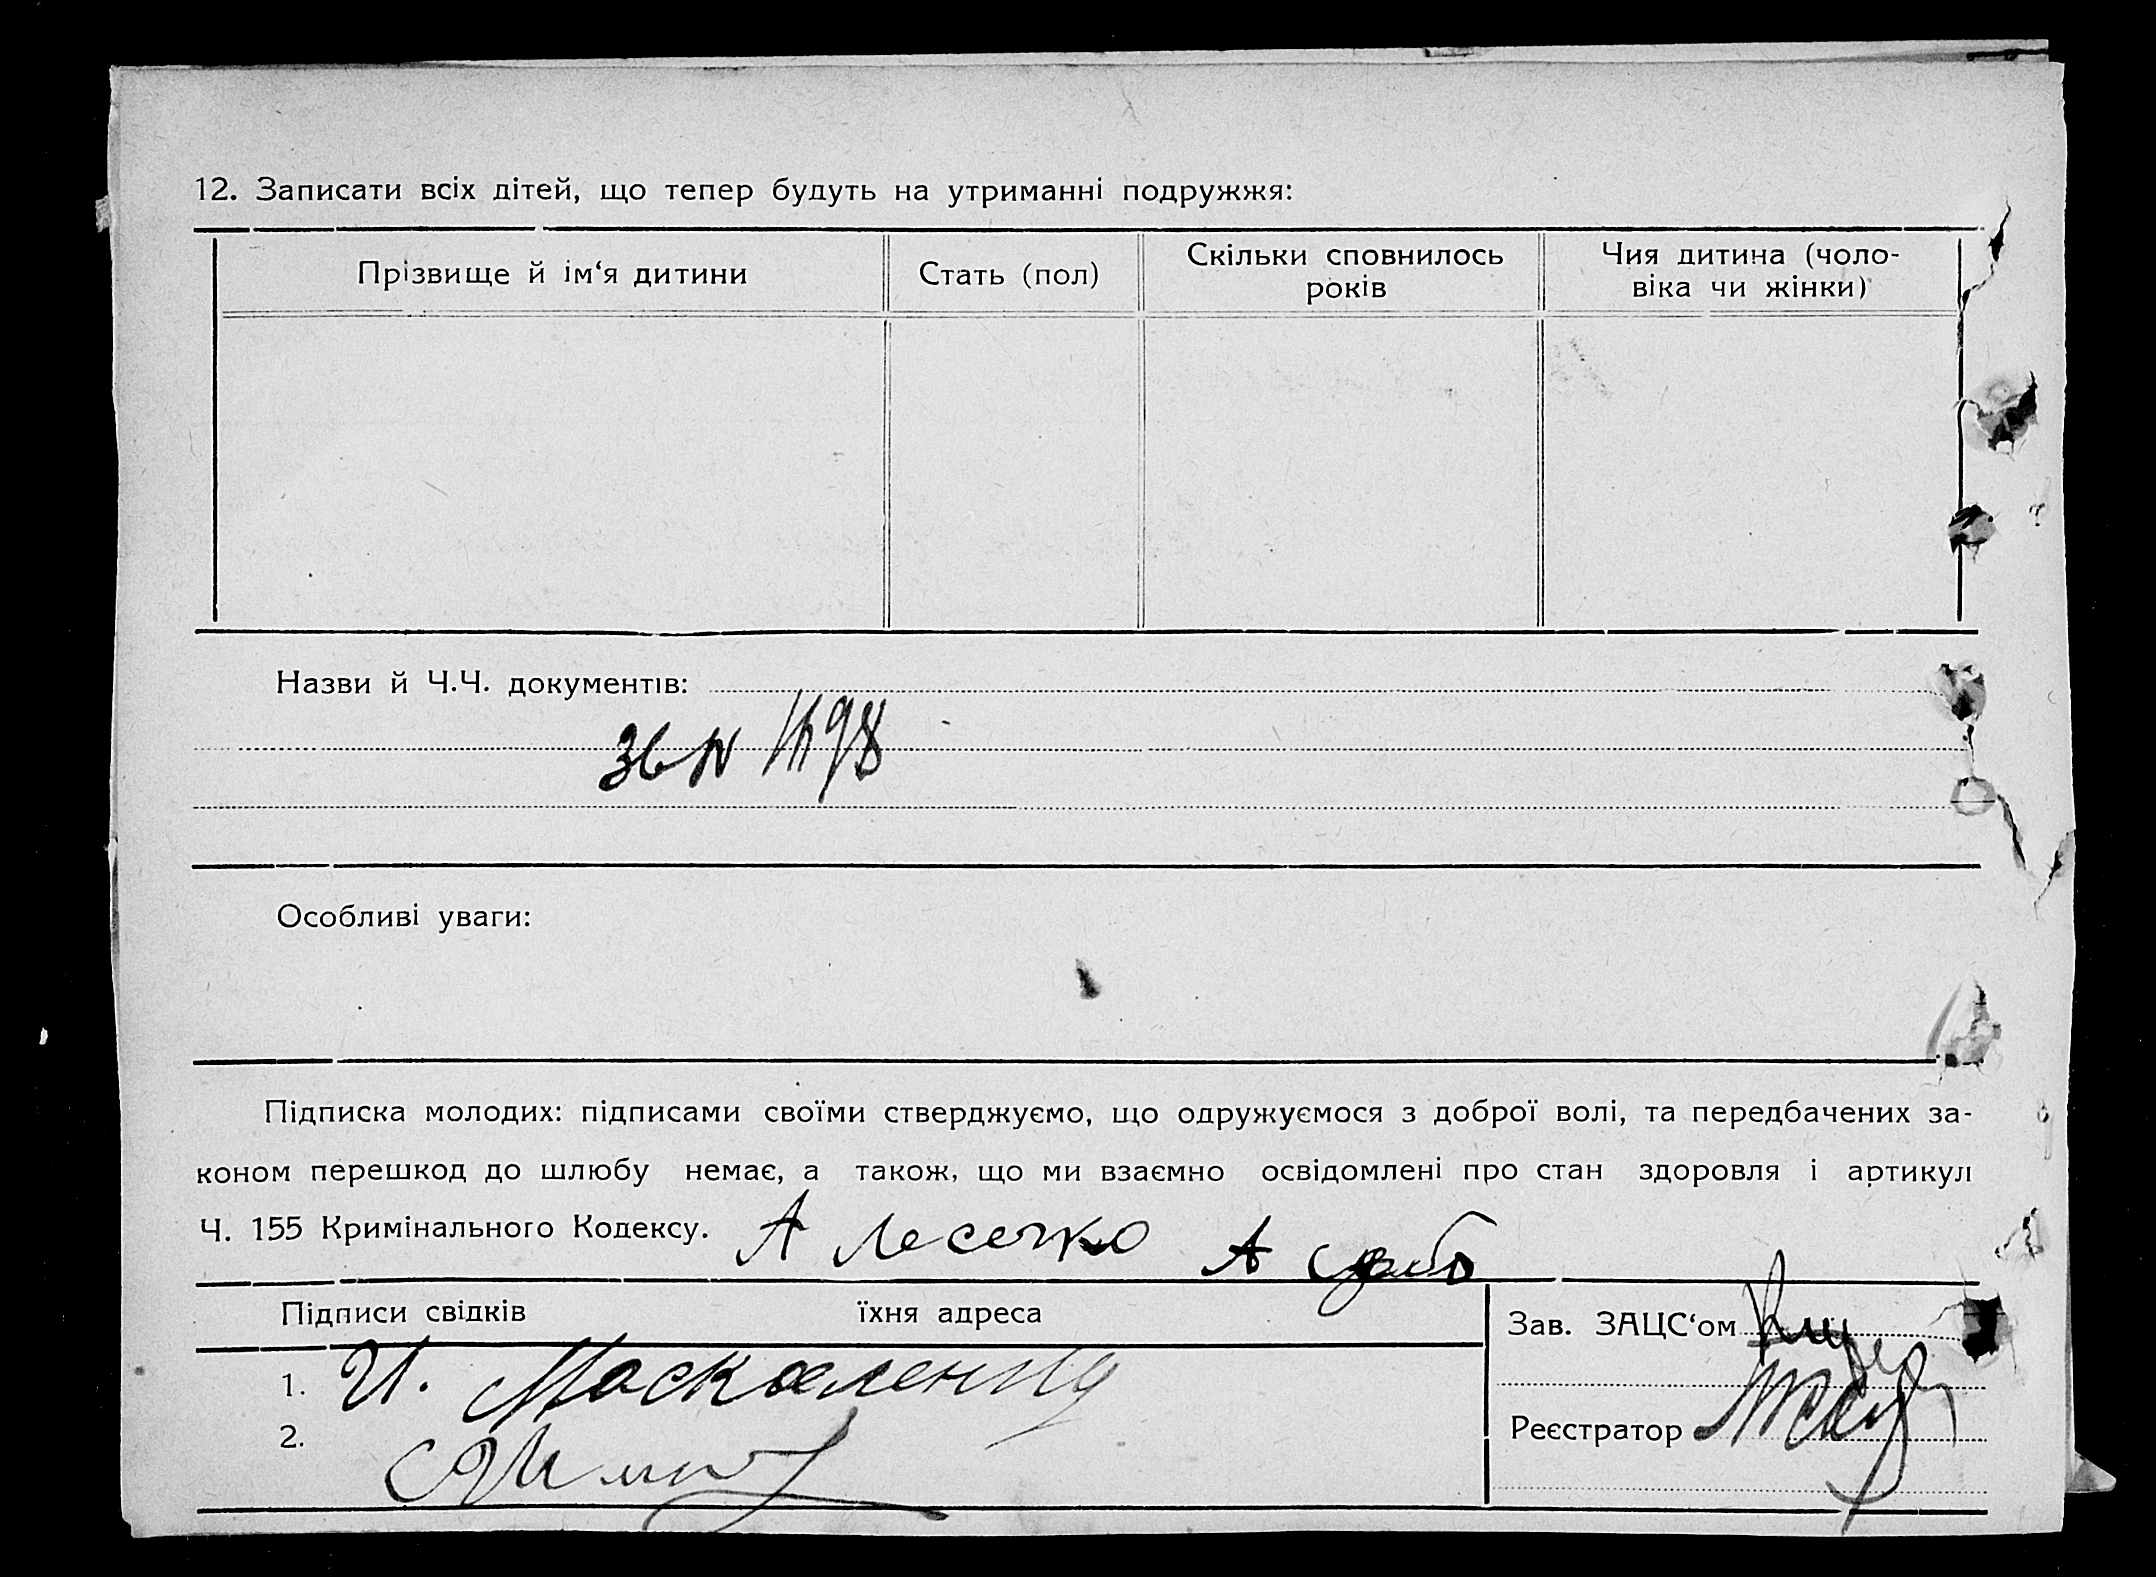 12. Записати всіх дітей, що тепер будуть на утриманні подружжя:
Прізвище й ім‘я дитини
Стать (пол)
Скільки сповнилось
років
Чия дитина (чоло-
віка чи жінки)
Назви й Ч.Ч. документів:
Особливі уваги:
Підписка молодих: підписами своїми стверджуємо, що одружуємося з доброї волі, та передбачених за-
коном перешкод до шлюбу немає, а також, що ми взаємно освідомлені про стан здоровля і артикул
Ч. 155 Кримінального Кодексу. А Лесечко А
Підписи свідків
їхня адреса
Зав. ЗАЦС‘ом
1. И.
2.
Реєстратор